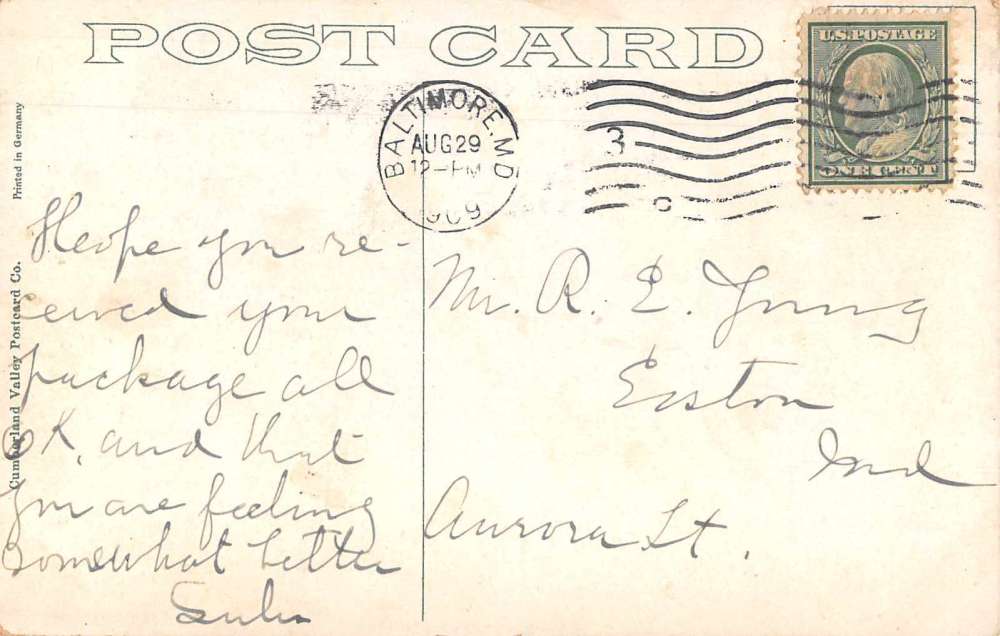 POST CARD
U.S. POSTAGE
ONE CENT
BALTIMORE, MD
AUG 29
12-PM
1909
3
C
Printed in Germany
Cumberland Valley Postcard Co.
Hope you re-
ceived your
package all
OK, and that
you are feeling
somewhat better
Mr. R. E. Young
Easton
Md
Aurora St.